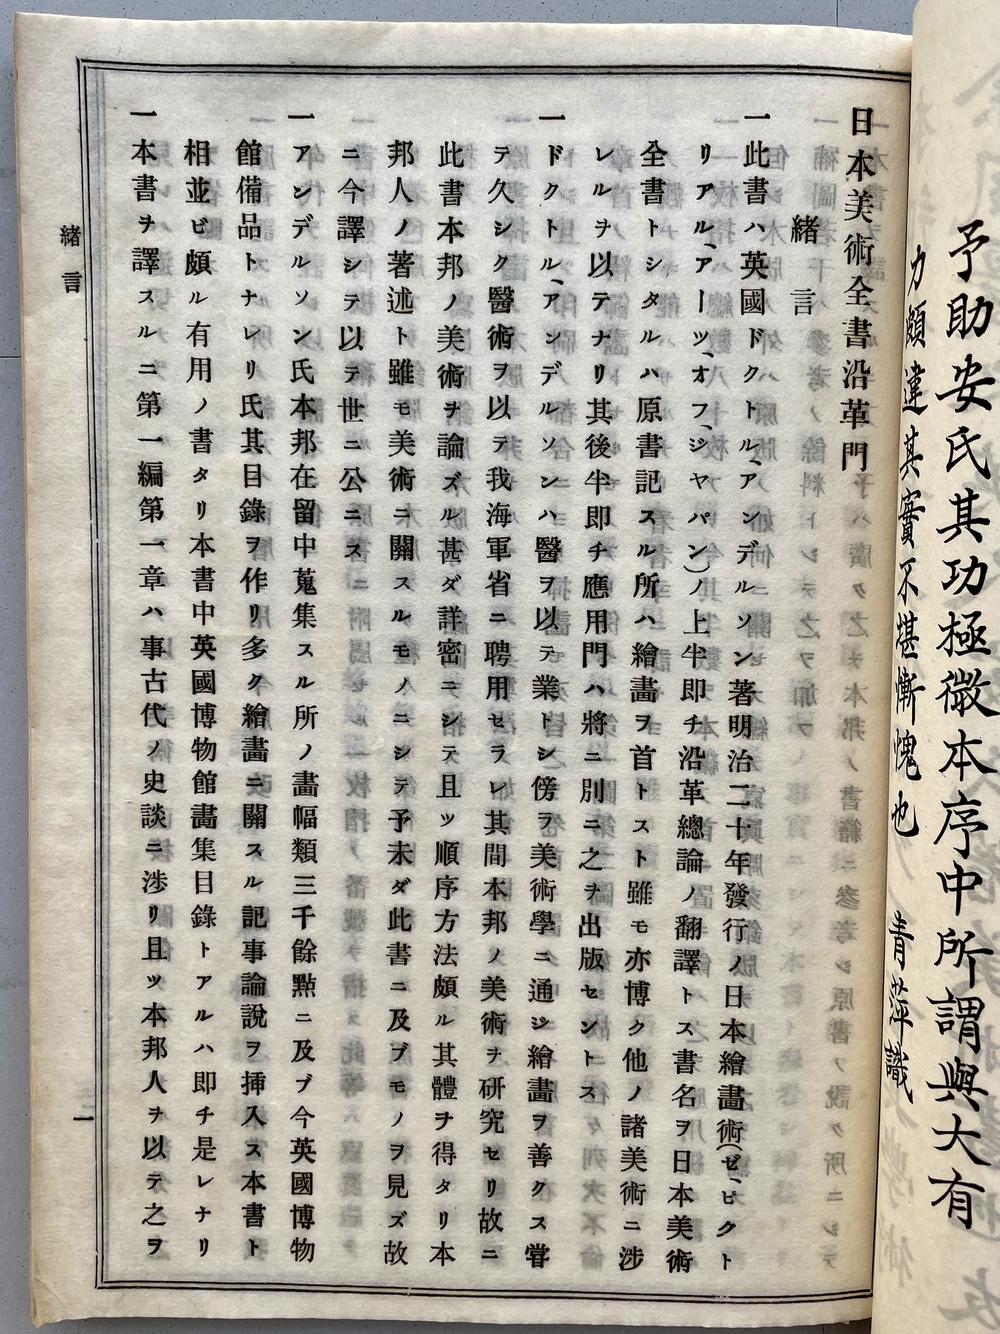 予助安氏其功極微本序中所謂與大有
力頗違其實不堪慚愧也　青萍識
日本美術全書沿革門
緒言
一此書ハ英國ドクトル、アンデルソン著明治二十年發行ノ日本繪畫術(ゼ、ピクト
リアル、アーツ、オフ、ジヤパン)ノ上半即チ沿革總論ノ翻譯トス書名ヲ日本美術
全書トシタルハ原書記スル所ハ繪畫ヲ首トスト雖モ亦博ク他ノ諸美術ニ涉
レルヲ以テナリ其後半即チ應用門ハ將ニ別ニ之ヲ出版セントス
一ドクトル、アンデルソンハ醫ヲ以テ業トシ傍ヲ美術學ニ通シ繪畫ヲ善クス甞
テ久シク醫術ヲ以テ我海軍省ニ聘用セラレ其間本邦ノ美術ヲ研究セリ故ニ
此書本邦ノ美術ヲ論ズル甚ダ詳密ニシテ且ツ順序方法頗ル其體ヲ得タリ本
邦人ノ著述ト雖モ美術ニ關スルモノニシテ予未ダ此書ニ及ブモノヲ見ズ故
ニ今譯シテ以テ世ニ公ニス
一アンデルソン氏本邦在留中蒐集スル所ノ畫幅類三千餘點ニ及ブ今英國博物
館備品トナレリ氏其目錄ヲ作リ多ク繪畫ニ關スル記事論說ヲ挿入ス本書ト
相並ビ頗ル有用ノ書タリ本書中英國博物館畵集目錄トアルハ即チ是レナリ
一本書ヲ譯スルニ第一編第一章ハ事古代ノ史談ニ涉リ且ツ本邦人ヲ以テ之ヲ
緒言
一